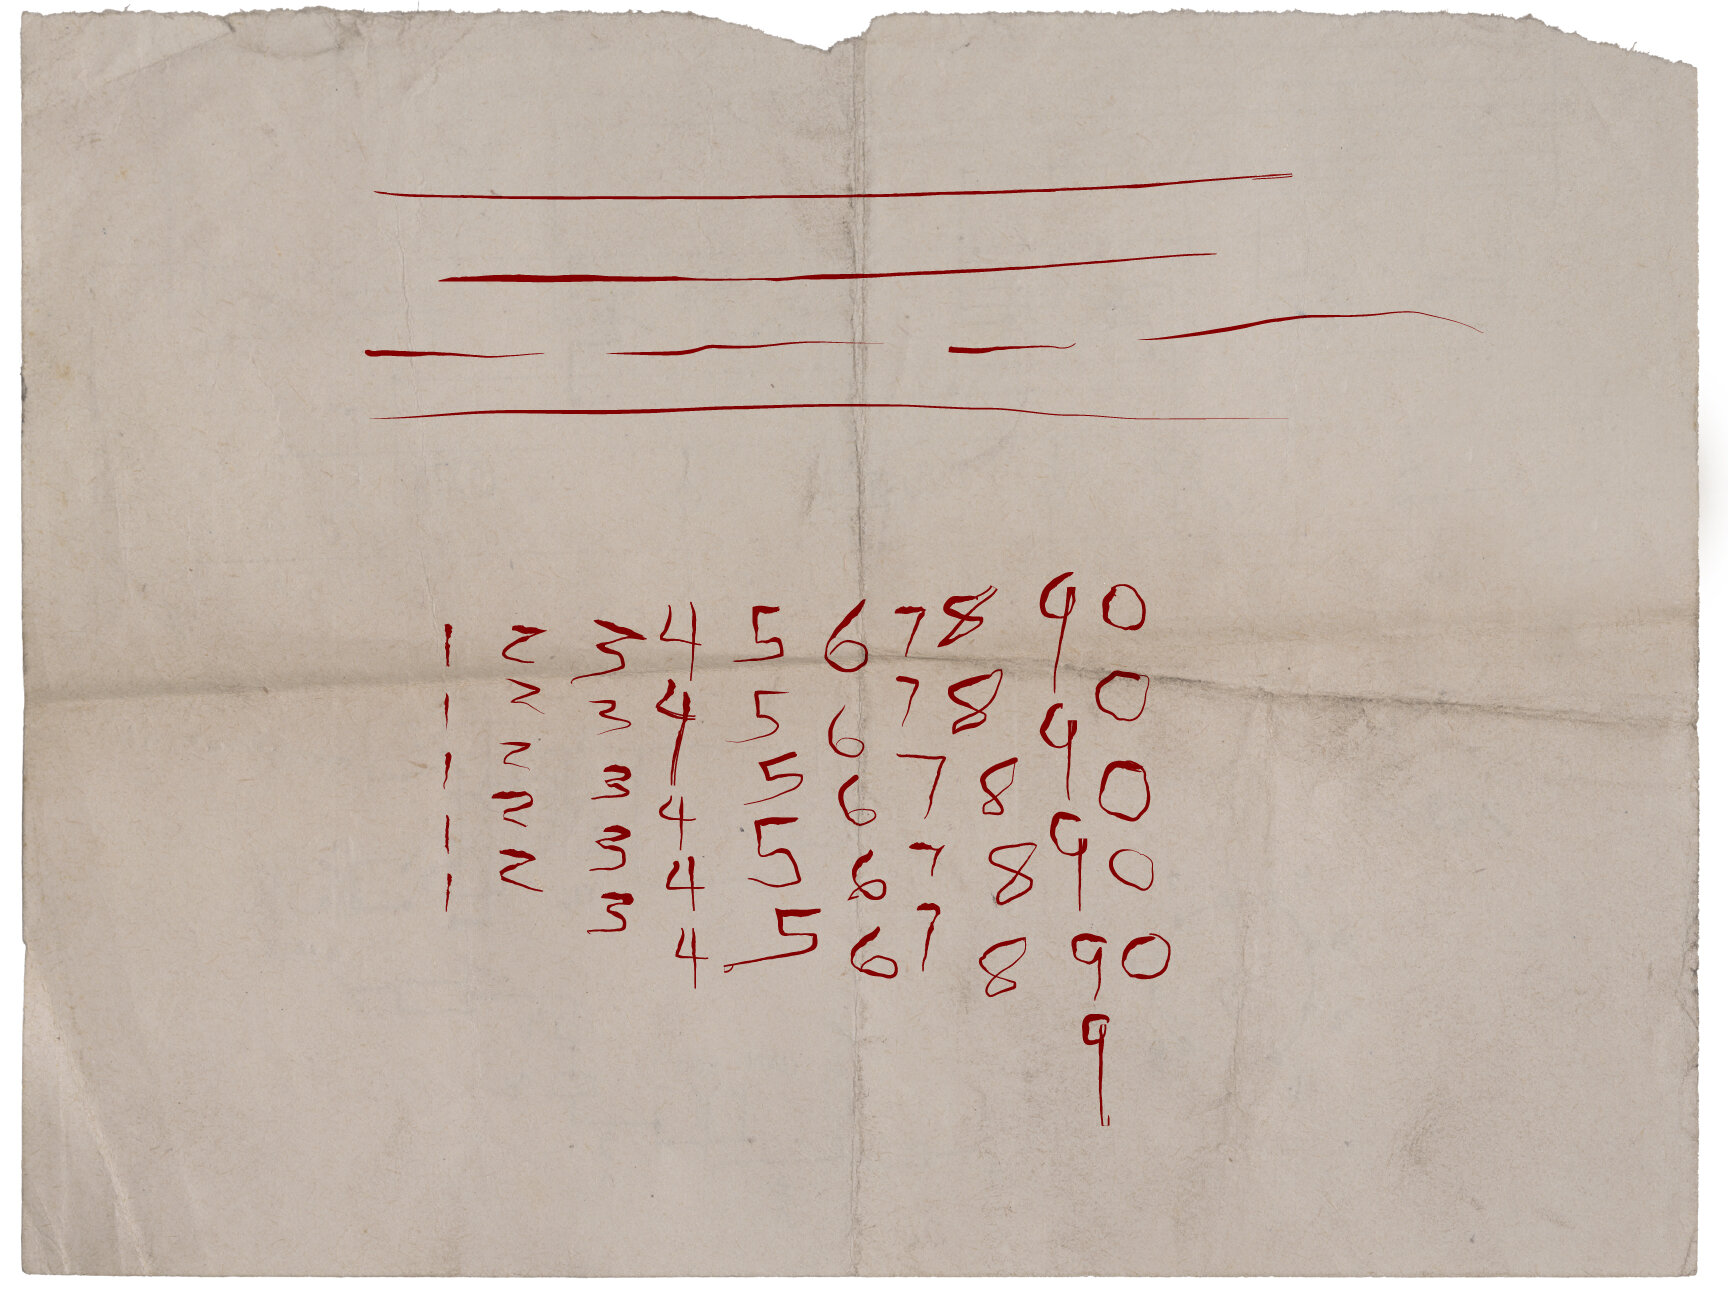 1 2 3 4 5 6 7 8 9 0
1 2 3 4 5 6 7 8 9 0
1 2 3 4 5 6 7 8 9 0
1 2 3 4 5 6 7 8 9 0
1 2 3 4 5 6 7 8 9 0
9